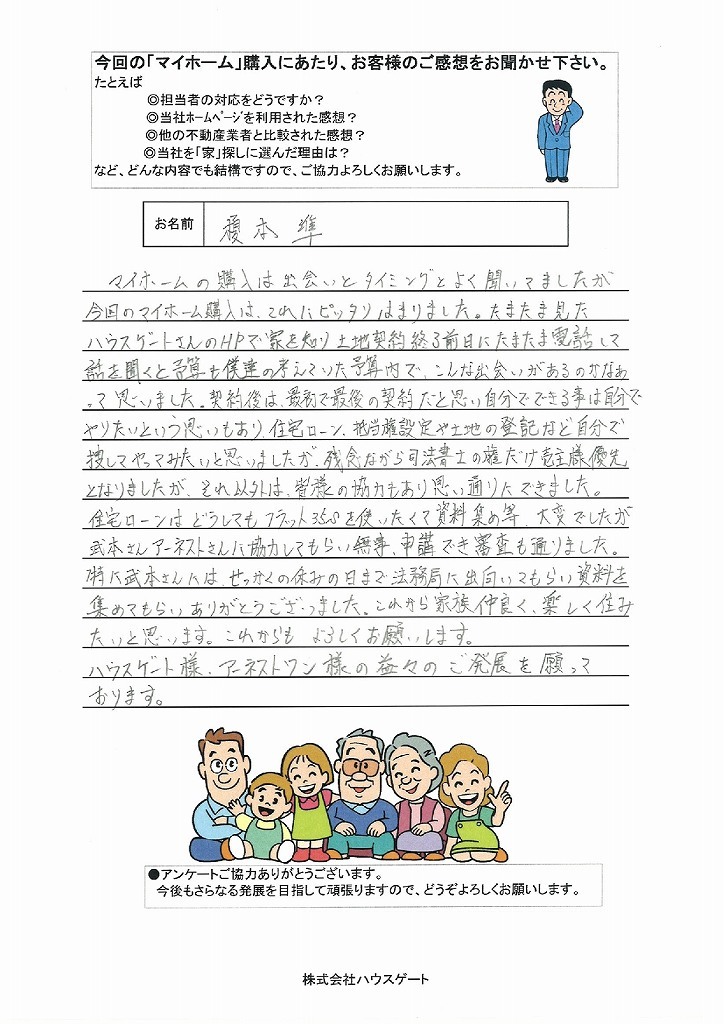 今回の「マイホーム」購入にあたり、お客様のご感想をお聞かせ下さい。
たとえば
◎担当者の対応をどうですか？
◎当社ﾎｰﾑﾍﾟｰｼﾞを利用された感想？
◎他の不動産業者と比較された感想？
◎当社を「家」探しに選んだ理由は？
など、どんな内容でも結構ですので、ご協力よろしくお願いします。
お名前 榎本 準
マイホームの購入は出会いとタイミングとよく聞いてましたが
今回のマイホーム購入は、これにピッタリはまりました。たまたま見た
ハウスゲートさんのHPで家を知り土地契約終了前日にたまたま電話して
話を聞くと予算も僕達の考えていた予算内で、こんな出会いがあるのかなぁ
って思いました。契約後は、最初で最後の契約だと思い自分でできる事は自分で
やりたいという思いもあり、住宅ローン、抵当権設定や土地の登記など自分で
捜してやってみたいと思いましたが、残念ながら司法書士の権だけ売主様優先
となりましたが、それ以外は、皆様の協力もあり思い通りにできました。
住宅ローンはどうしてもフラット35Sを使いたくて資料集め等、大変でしたが
武本さんアーネストさんに協力してもらい無事、申請でき審査も通りました。
特に武本さんには、せっかくの休みの日まで法務局に出向いてもらい資料を
集めてもらいありがとうございました。これから家族仲良く、楽しく住み
たいと思います。これからも よろしくお願いします。
ハウスゲート様、アーネストワン様の益々のご発展を願って
おります。
●アンケートご協力ありがとうございます。
今後もさらなる発展を目指して頑張りますので、どうぞよろしくお願いします。
株式会社ハウスゲート